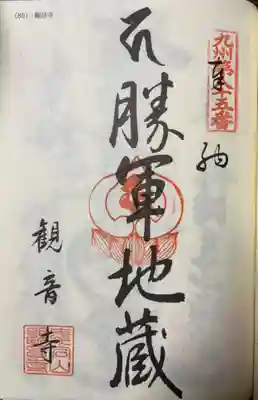 (85)・観音寺
九州第八十五番
奉納
勝軍地蔵
観音寺